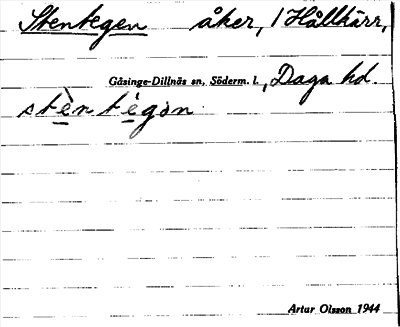 Stentegen åker, / Hållkärr,
Gåsinge-Dillnäs sn, Söderm. l., Daga hd.
stèn tégən
Artur Olsson 1944